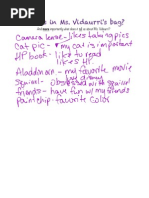 in Ms. Vidaurri's bag?
Camera lense - likes takin pics
Cat pic - my cat is important
HP book - like to read
likes HP
Aladdin cam - my favorite
movie
Squirrel - obsessed with squirrel
friends - have fun w/ my friends
Paint chip - favorite color